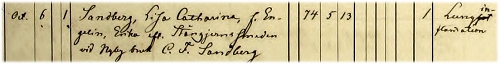 Oct. 6 1 Sandberg, Lisa Catharina, f. En- 74 5 13 1 Lungin-
gelin, Enka eft. Stångjernssmeden flamation
vid Nyby bruk C. F. Sandberg